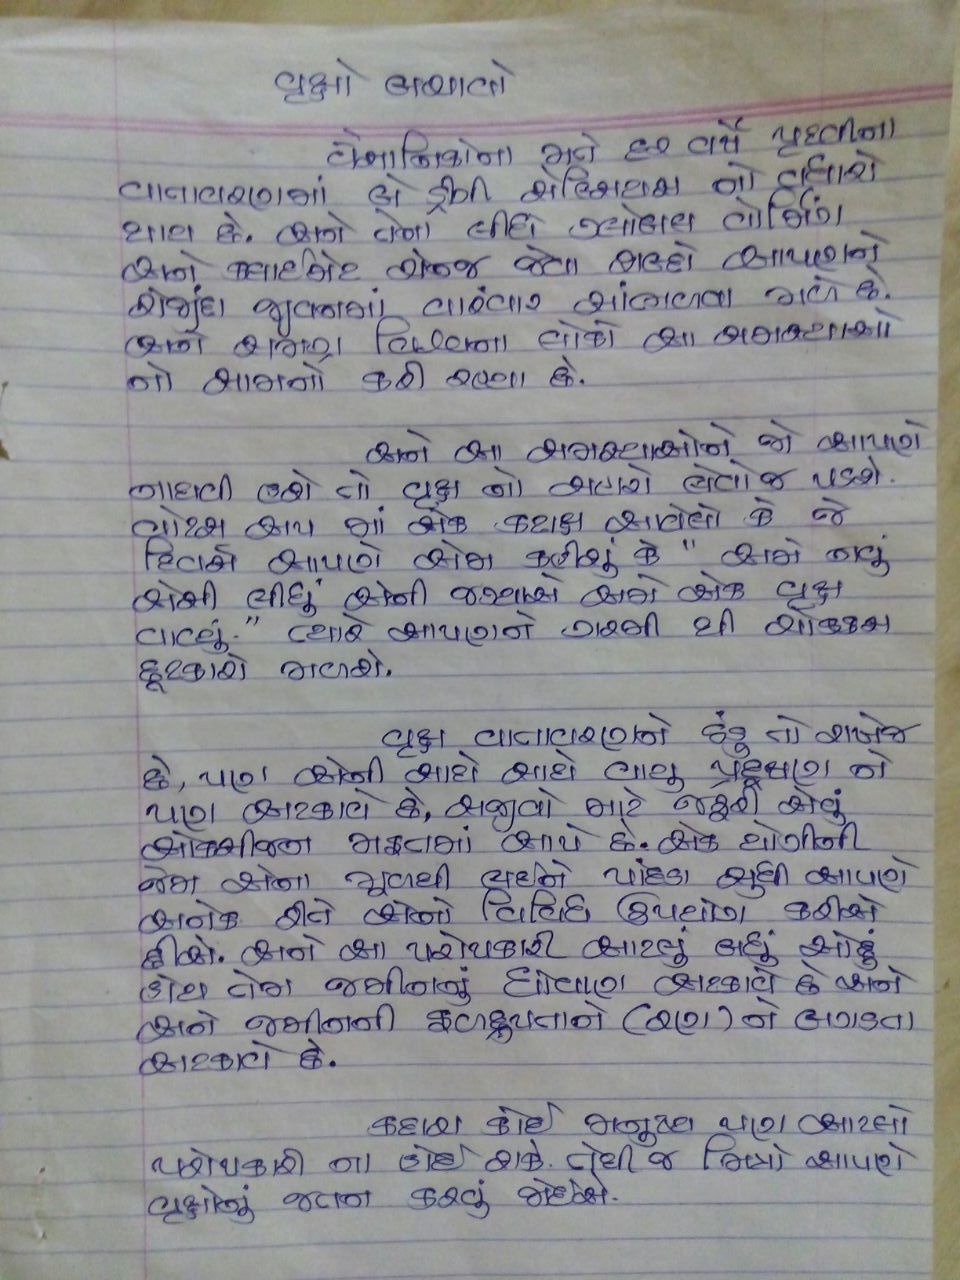 વૃક્ષો બચાવો
વૈજ્ઞાનિકોના મતે દર વર્ષે પૃથ્વીના
વાતાવરણમાં બે ડીગ્રી સેલ્સિયસ નો વધારો
થાય છે. અને તેના લીધે ગ્લોબલ વોર્મિંગ
અને ક્લાઈમેટ ચેન્જ જેવા શબ્દો આપણને
રોજીંદા જીવનમાં વારંવાર સાંભળવા મળે છે.
અને સમગ્ર વિશ્વના લોકો આ સમસ્યાઓ
નો સામનો કરી રહ્યા છે.
અને આ સમસ્યાઓને જો આપણે
નાથવી હશે તો વૃક્ષ નો સહારો લેવોજ પડશે.
વોટ્સ અપ માં એક કટાક્ષ આવેલો કે જે
દિવસે આપણે એમ કહીશું કે " અમે નવું
એસી લીધું એની જગ્યાએ અમે એક વૃક્ષ
વાવ્યું." ત્યારે આપણને ગરમી થી ચોક્કસ
છૂટકારો મળશે.
વૃક્ષ વાતાવરણને ઠંડુ તો રાખેજ
છે, પણ એની સાથે સાથે વાયુ પ્રદૂષણ ને
પણ અટકાવે છે, સજીવો માટે જરૂરી એવું
ઓક્સીજન મફતમાં આપે છે. એક યોગીની
જેમ એના મૂળથી લઈને પાંદડા સુધી આપણે
અનેક રીતે એનો વિવિધ ઉપયોગ કરીએ
છીએ. અને આ પરોપકારી આટલું બધું ઓછું
હોય તેમ જમીનનું ધોવાણ અટકાવે છે અને
અને જમીનની ફળદ્રુપતાને (રણ) ને બગડતા
અટકાવે છે.
કદાચ કોઈ મનુષ્ય પણ આટલો
પરોપકારી ના હોઈ શકે. તેથી જ મિત્રો આપણે
વૃક્ષોનું જતન કરવું જોઈએ.